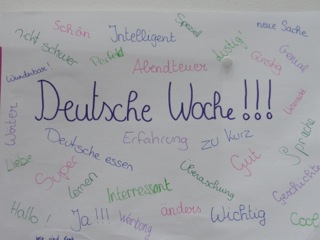 Schön
Intelligent
Speziell
neue Sache
nicht schwer
Perfekt
Lustig!
Genial
Wunderbar!
Abendteuer
Günstig
Deutsche Woche!!!
Wörter
Deutsche essen
Erfahrung
zu kurz
Sprache
Liebe
Super
lernen
Interressant
Überaschung
Gut
Geschichte
Hallo!
Ja!!!
Werbung
anders
Wichtig
Cool